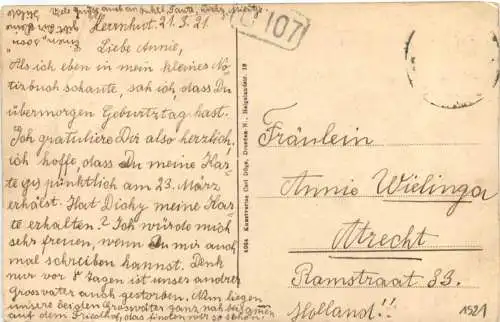 Viele Grüße auch an Onkel, Tante, Dicky,
Herrnhut. 21.3.21.
Liebe Annie,
Als ich eben in mein kleines No-
tizbuch schaute, sah ich, dass Du
übermorgen Geburtztag hast.
Ich gratuliere Dir also herzlich,
ich hoffe, dass Du meine Kar-
te pünktlich am 23. März
erhälst. Hat Dicky meine Kar-
te erhalten? Ich würde mich
sehr freuen, wenn Du mir auch
mal schreiben kannst. Denk
nur vor 8 Tagen ist unser andrer
Grossvater auch gestorben. Nun liegen
unsere beiden Grossväter ganz nah beisammen
auf dem Friedhof, das finden wir so schön!
C 107
Kunstverlag Carl Döge, Dresden N., Helgolandstr. 19
Fräulein
Annie Wielinga
Utrecht
Ramstraat 33.
Holland!!
1521